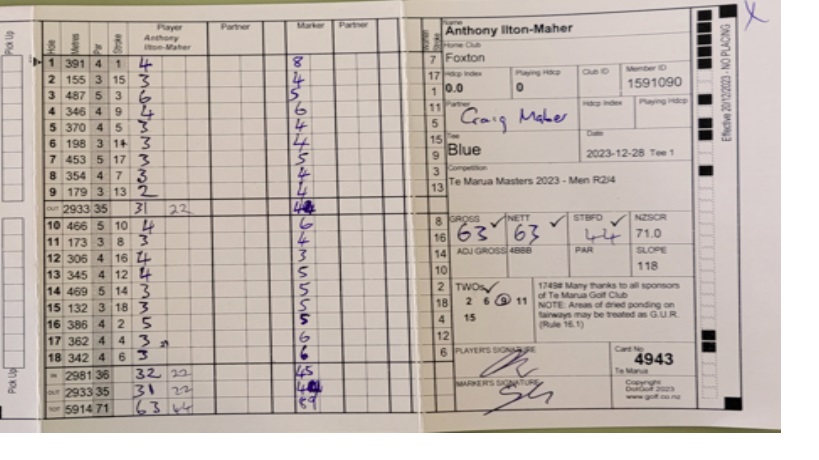 Pick Up
Hole Metres Par Stroke Player Partner Marker Partner
Anthony
Ilton-Maher
1 391 4 1 4 8
2 155 3 15 3 4
3 487 5 3 6 5
4 346 4 9 4 6
5 370 4 5 3 4
6 198 3 3 4
7 453 5 17 3 5
8 354 4 7 3 4
9 179 3 13 2 4
OUT 2933 35 31 22
10 466 5 10 4 6
11 173 3 8 3 4
12 306 4 16 4 3
13 345 4 12 4 5
14 469 5 14 3 5
15 132 3 18 3 5
16 386 4 2 5 5
17 362 4 4 3 6
18 342 4 6 3 6
IN 2981 36 32 22 45
OUT 2933 35 31 22
TOT 5914 71 63 44 89
Pick Up
Stroke
7
17
1
11
5
15
9
3
13
8
16
14
10
2
18
4
12
6
Name
Anthony Ilton-Maher
Home Club
Foxton
Hdcp Index Playing Hdcp Club ID Member ID
0.0 0 1591090
Partner Hdcp Index Playing Hdcp
Craig Maher
Tee Date
Blue 2023-12-28 Tee 1
Competition
Te Marua Masters 2023 - Men R2/4
GROSS NETT STBFD NZSCR
63 63 44 71.0
ADJ GROSS 4BBB PAR SLOPE
118
TWOs
2 6 9 11
15
1749# Many thanks to all sponsors
of Te Marua Golf Club
NOTE: Areas of dried ponding on
fairways may be treated as G.U.R.
(Rule 16.1)
PLAYER'S SIGNATURE
MARKER'S SIGNATURE
Card No
4943
Te Marua
Copyright
DotGolf 2023
www.golf.co.nz
Effective 20/12/2023 - NO PLACING
X